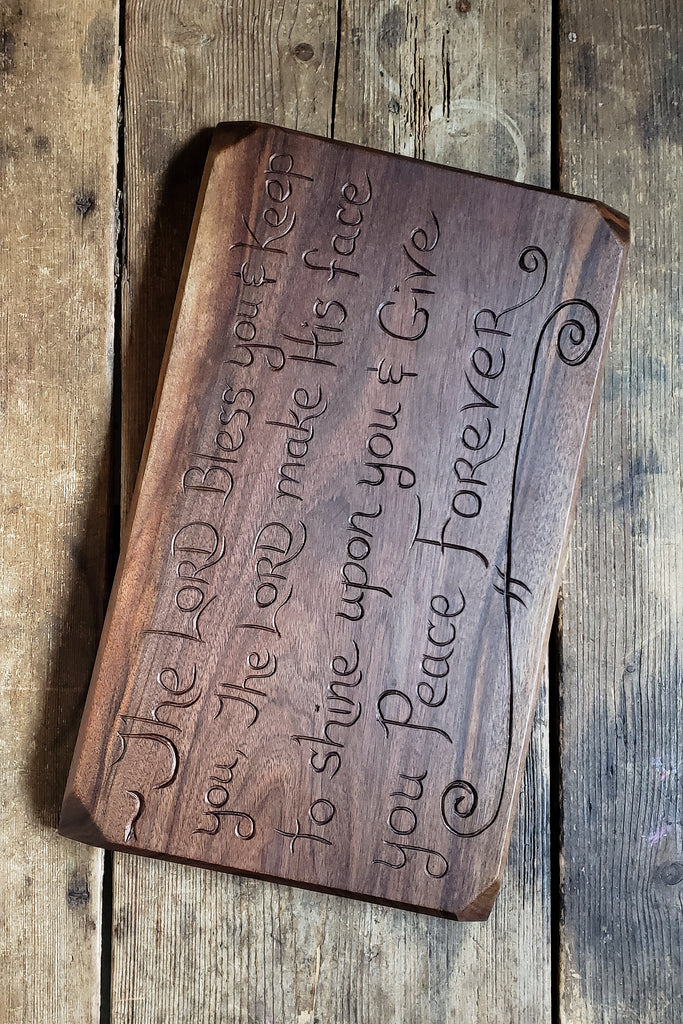 The LORD Bless you & Keep
you, The LORD make His face
to shine upon you & Give
you Peace ForeveR